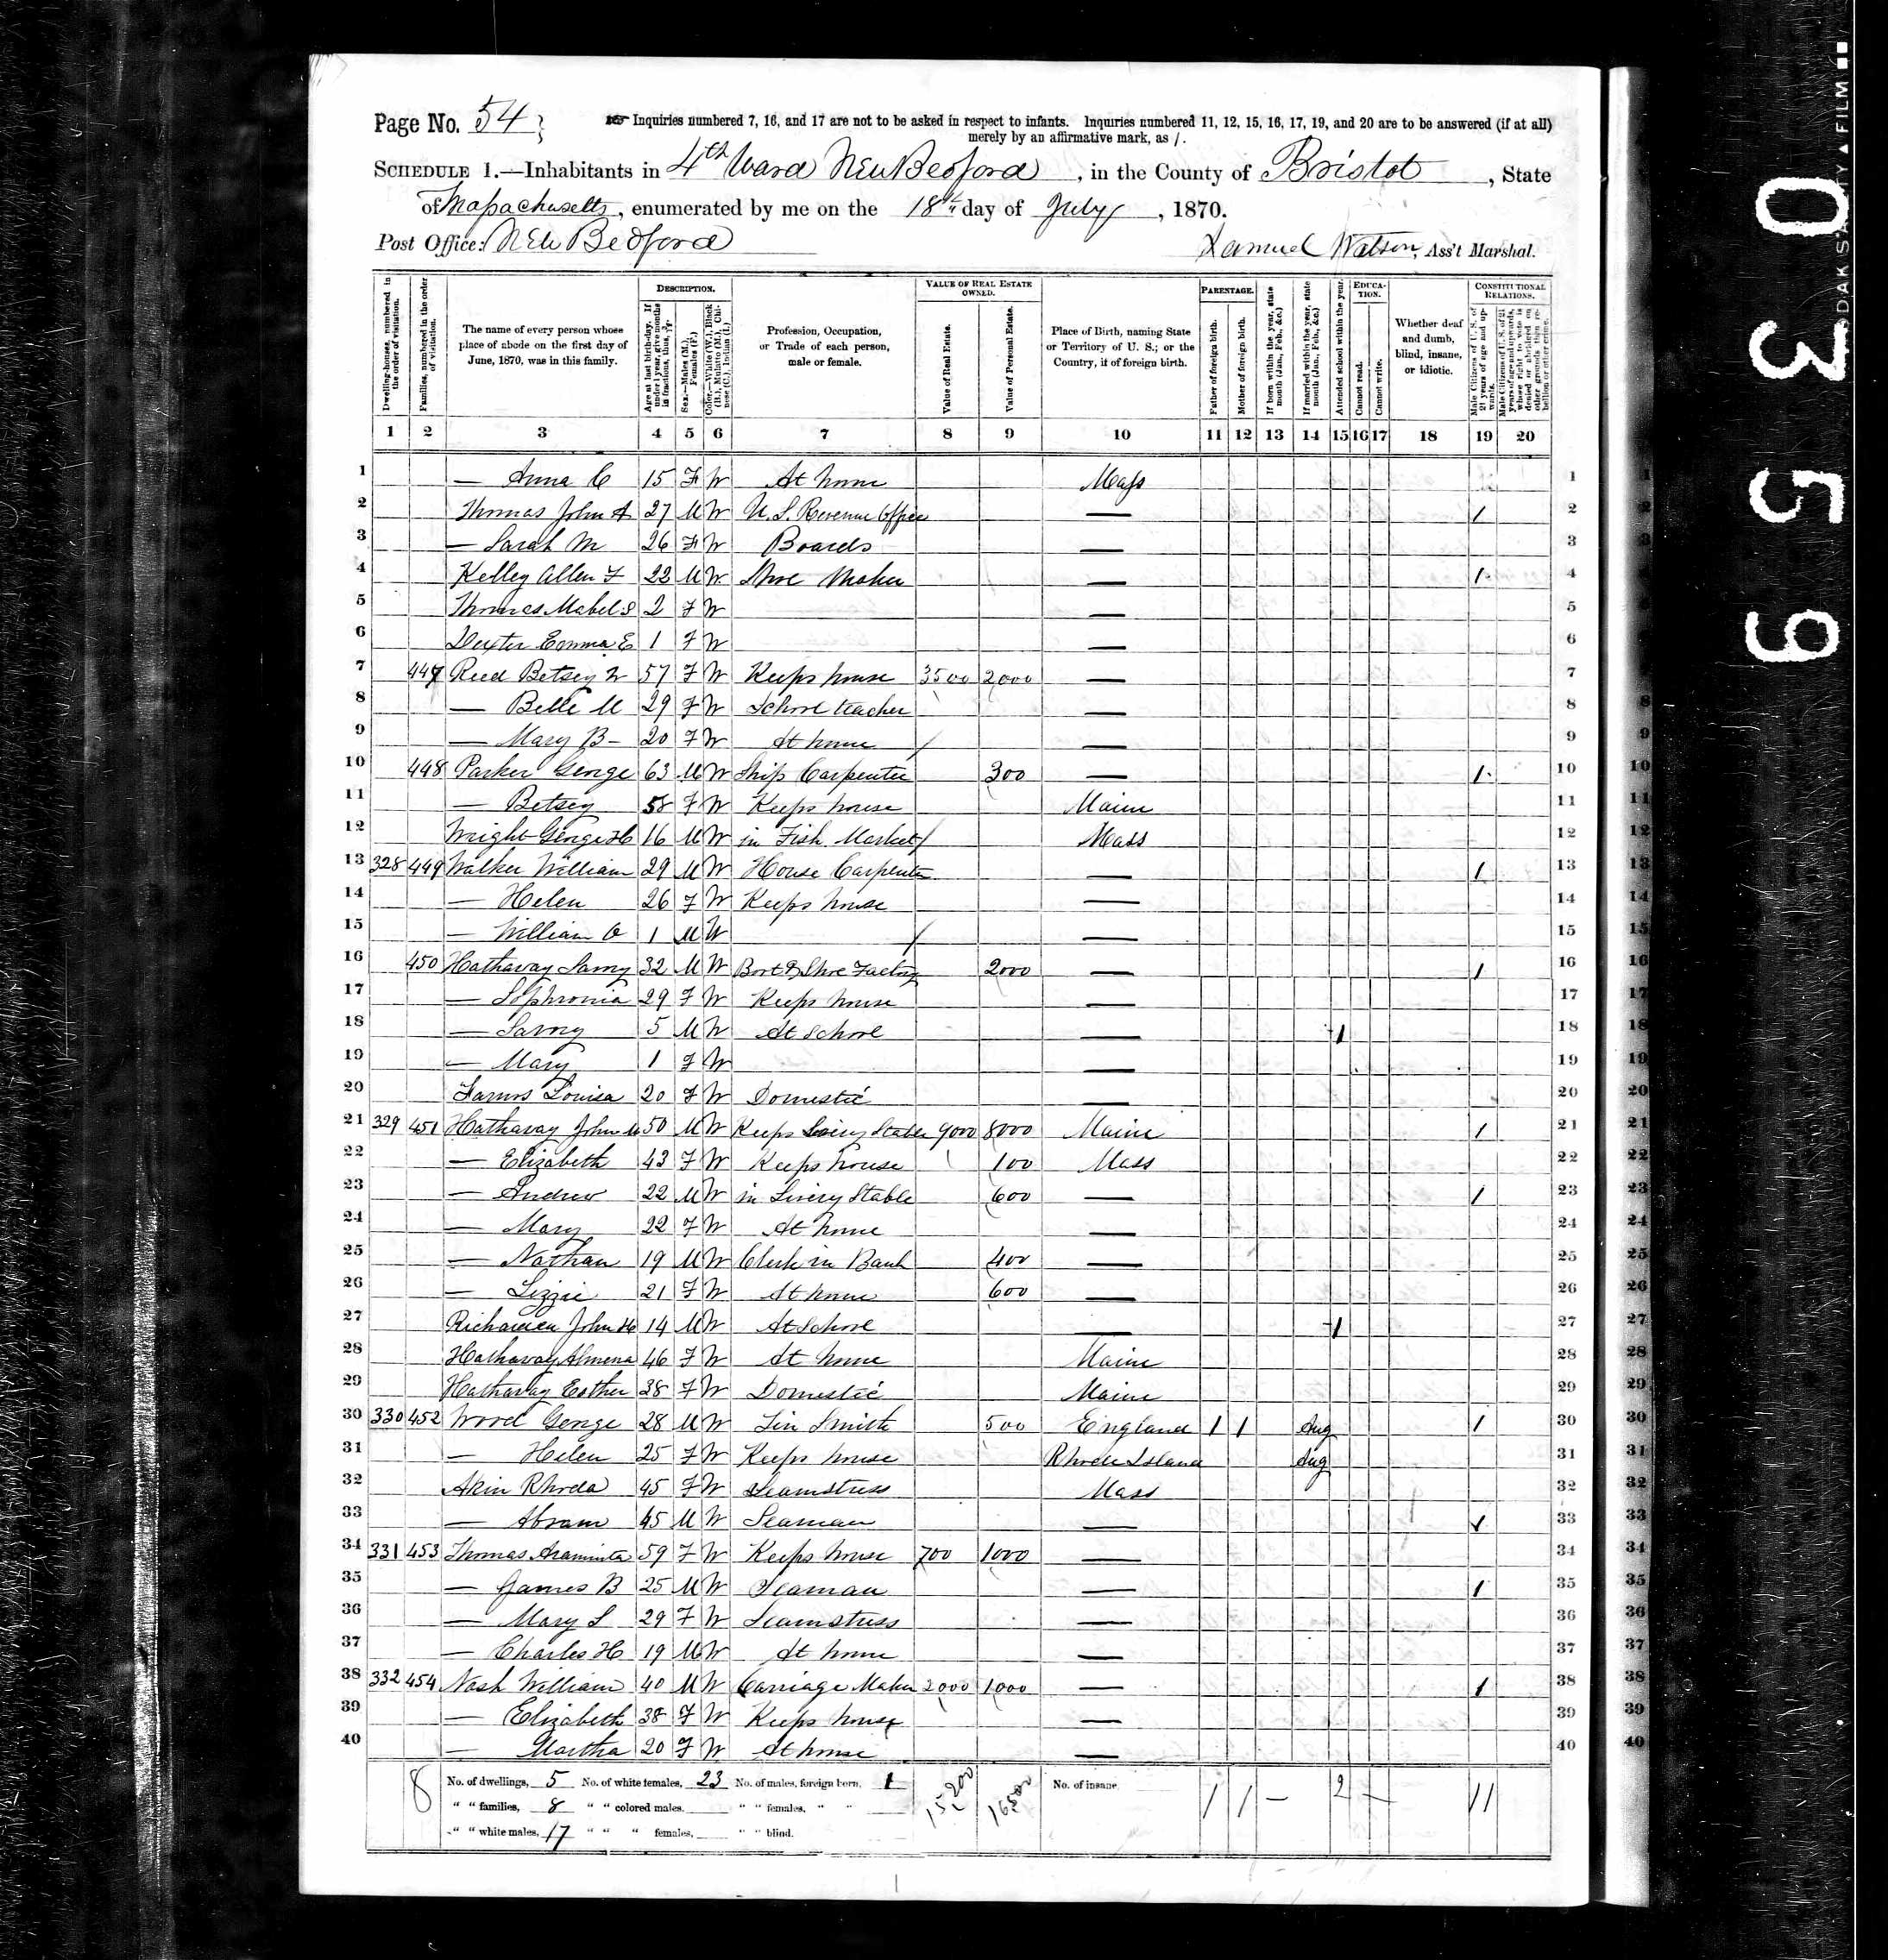 Page No. 54
Inquiries numbered 7, 16, and 17 are not to be asked in respect to infants. Inquiries numbered 11, 12, 15, 16, 17, 19, and 20 are to be answered (if at all)
merely by an affirmative mark, as /.
SCHEDULE 1.—Inhabitants in 4th Ward New Bedford, in the County of Bristol, State
of Massachusetts, enumerated by me on the 18th day of July, 1870.
Post Office: New Bedford Samuel Watson, Ass't Marshal.
Dwelling-houses, numbered in the order of visitation.
Families, numbered in the order of visitation.
The name of every person whose place of abode on the first day of June, 1870, was in this family.
DESCRIPTION.
Age at last birth-day. If under 1 year, give months in fractions, thus,
Sex.—Males (M.), Females (F.)
Color.—White (W.), Black (B.), Mulatto (M.), Chinese (C.), Indian (I.)
Profession, Occupation, or Trade of each person, male or female.
VALUE OF REAL ESTATE OWNED.
Value of Real Estate.
Value of Personal Estate.
Place of Birth, naming State or Territory of U. S.; or the Country, if of foreign birth.
PARENTAGE.
Father of foreign birth.
Mother of foreign birth.
If born within the year, state month (Jan., Feb., &c.)
If married within the year, state month (Jan., Feb., &c.)
Attended school within the year.
EDUCATION.
Cannot read.
Cannot write.
Whether deaf and dumb, blind, insane, or idiotic.
CONSTITUTIONAL RELATIONS.
Male Citizens of U. S. of 21 years of age and upwards.
Male Citizens of U. S. of 21 years of age and upwards, whose right to vote is denied or abridged on other grounds than rebellion or other crime.
1 2 3 4 5 6 7 8 9 10 11 12 13 14 15 16 17 18 19 20
1 — Anna C 15 F W At home Mass 1
2 Thomas John A 27 M W U.S. Revenue Office — / 2
3 — Sarah M 26 F W Boards — 3
4 Kelley Allen F 22 M W Shoe Maker — / 4
5 Thomas Mabel S 2 F W — 5
6 Dexter Emma E 1 F W — 6
7 447 Reed Betsey W 57 F W Keeps house 3500 2000 — 7
8 — Belle M 29 F W School teacher — 8
9 — Mary B 20 F W At home — 9
10 448 Parker George 63 M W Ship Carpenter 300 — / 10
11 — Betsey 58 F W Keeps house Maine 11
12 Wright George H 16 M W in Fish Market Mass 12
13 328 449 Walker William 29 M W House Carpenter — / 13
14 — Helen 26 F W Keeps house — 14
15 — William O 1 M W — 15
16 450 Hathaway Savory 32 M W Boot & Shoe Factory 2000 — / 16
17 — Sophronia 29 F W Keeps house — 17
18 — Savory 5 M W At School — / 18
19 — Mary 1 F W — 19
20 Louisa 20 F W Domestic — 20
21 329 451 Hathaway John M 50 M W Keeps Livery Stable 9000 8000 Maine / 21
22 — Elizabeth 43 F W Keeps house 100 Mass 22
23 — Andrew 22 M W in Livery Stable 600 — / 23
24 — Mary 22 F W At home — 24
25 — Nathan 19 M W Clerk in Bank 400 — 25
26 — Lizzie 21 F W At home 600 — 26
27 John H 14 M W At School — / 27
28 Hathaway Almena 46 F W At home Maine 28
29 Hathaway Esther 38 F W Domestic Maine 29
30 330 452 Wood George 28 M W Tin Smith 500 England / / Aug / 30
31 — Helen 25 F W Keeps house Rhode Island Aug 31
32 Akin Rhoda 45 F W Seamstress Mass 32
33 — Abram 45 M W Seaman — / 33
34 331 453 Thomas Araminta 59 F W Keeps house 700 1000 — 34
35 — James B 25 M W Seaman — / 35
36 — Mary S 29 F W Seamstress — 36
37 — Charles H 19 M W At home — 37
38 332 454 Nash William 40 M W Carriage Maker 2000 1000 — / 38
39 — Elizabeth 38 F W Keeps house — 39
40 — Martha 20 F W At home — 40
8 No. of dwellings, 5 No. of white females, 23 No. of males, foreign born, 1 15,200 16,500 No. of insane, 1 1 — 2 — 11
" " families, 8 " " colored males, " " females, " "
" " white males, 17 " " " females, " " blind.
0359
SAFETY FILM